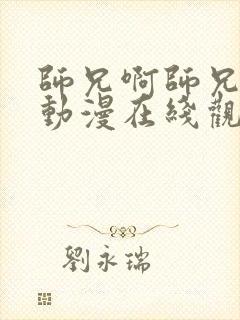 師兄啊師兄
動漫在綫觀
劉永瑞